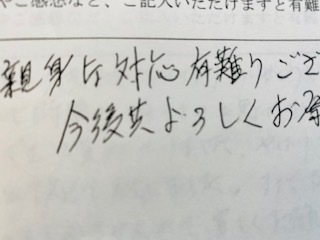 やご感想など、ご記入いただけますと有難
親身な対応有難うござ
今後共よろしくお